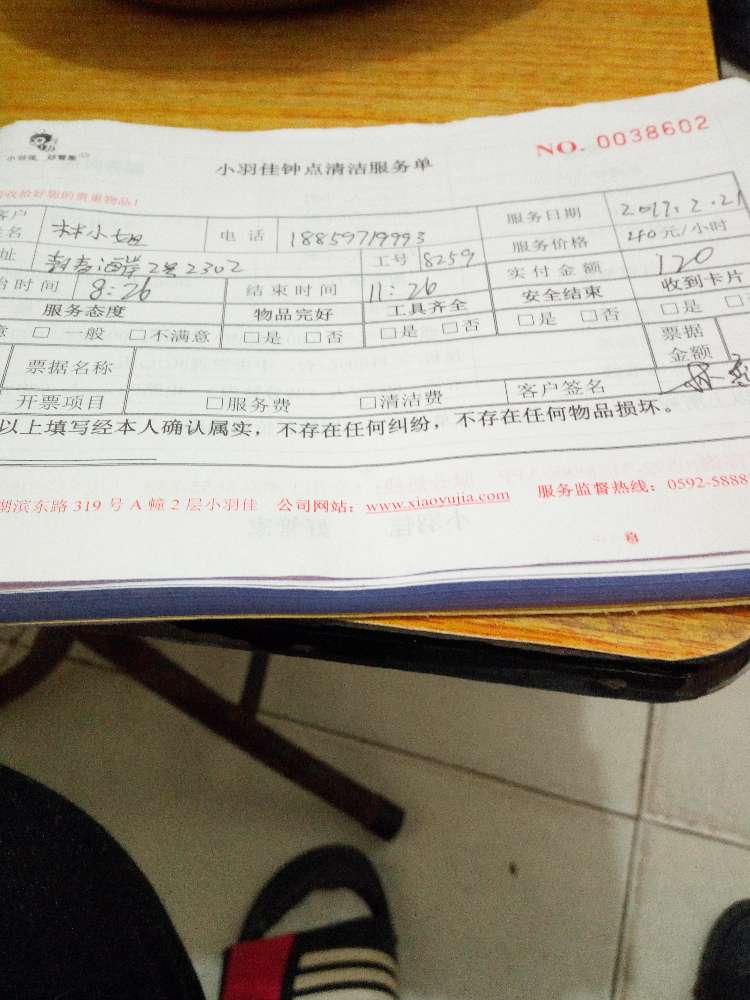 小羽佳 好管家
NO. 0038602
小羽佳钟点清洁服务单
收拾好您的贵重物品!
客户姓名 林小姐 电话 18859719993 服务日期 2017.2.21
址 海岸2号2302 工号 8259 服务价格 40元/小时
始时间 8:26 结束时间 11:26 实付金额 120
服务态度 物品完好 工具齐全 安全结束 收到卡片
意 □一般 □不满意 □是 □否 □是 □否 □是 □否 □是 □
票据名称 票据金额
开票项目 □服务费 □清洁费 客户签名
以上填写经本人确认属实，不存在任何纠纷，不存在任何物品损坏。
湖滨东路319号A幢2层小羽佳 公司网站：www.xiaoyujia.com 服务监督热线：0592-5888